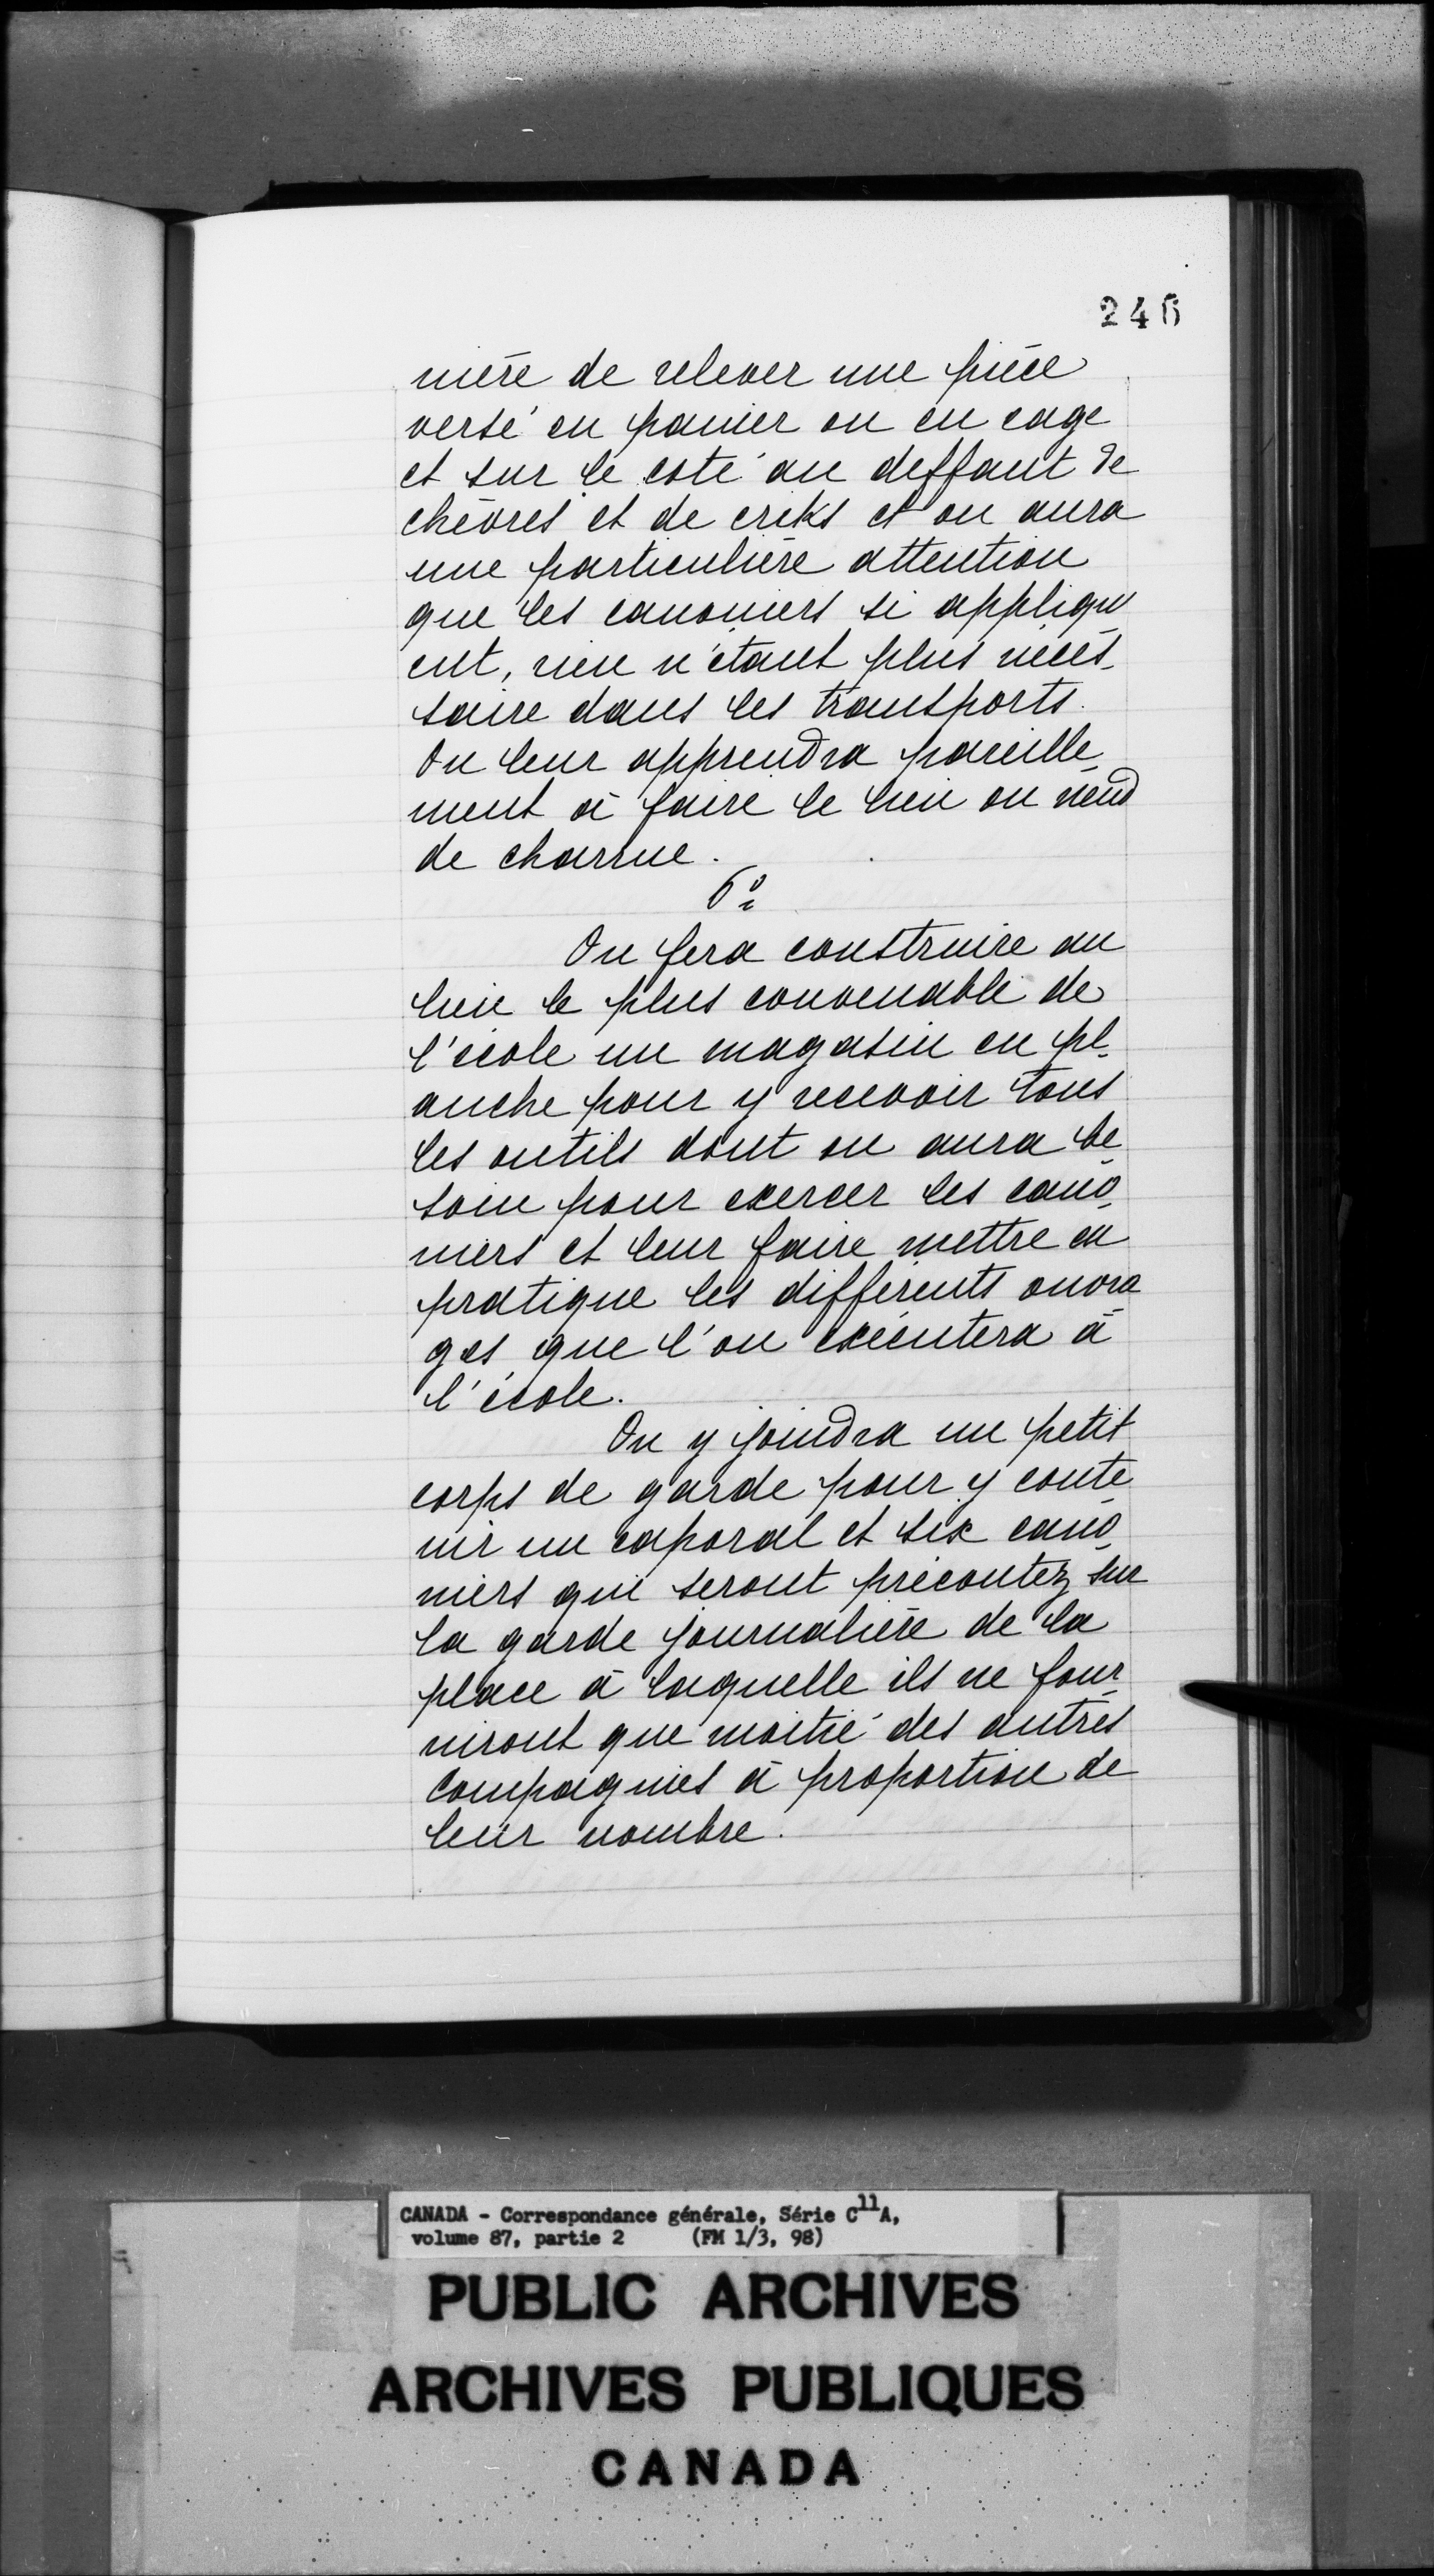 246
nière de relever une pièce
versé en panier ou en cage
et sur le coté au deffaut de
chèvres et de criks et on aura
une particulière attention
que les canoniers si appliqu
ent, rien n'étant plus néces-
saire dans les transports.
On leur apprendra pareille-
ment à faire le lien ou neud
de charrue.
6º
On fera construire au
lieu le plus convenable de
l'école un magasin en pl-
anche pour y recevoir tous
les outils dont on aura be-
soin pour exercer les cano-
niers et leur faire mettre en
pratique les différents ouvra
ges que l'on exécutera à
l'école.
On y joindra un petit
corps de garde pour y conte
nir un caporal et six cano-
niers qui seront précontez sur
la garde journalière de la
place à laquelle ils ne four-
niront que moitié des autres
compagnies à proportion de
leur nombre.
CANADA - Correspondance générale, Série C11A,
volume 87, partie 2 (FM 1/3, 98)
PUBLIC ARCHIVES
ARCHIVES PUBLIQUES
CANADA